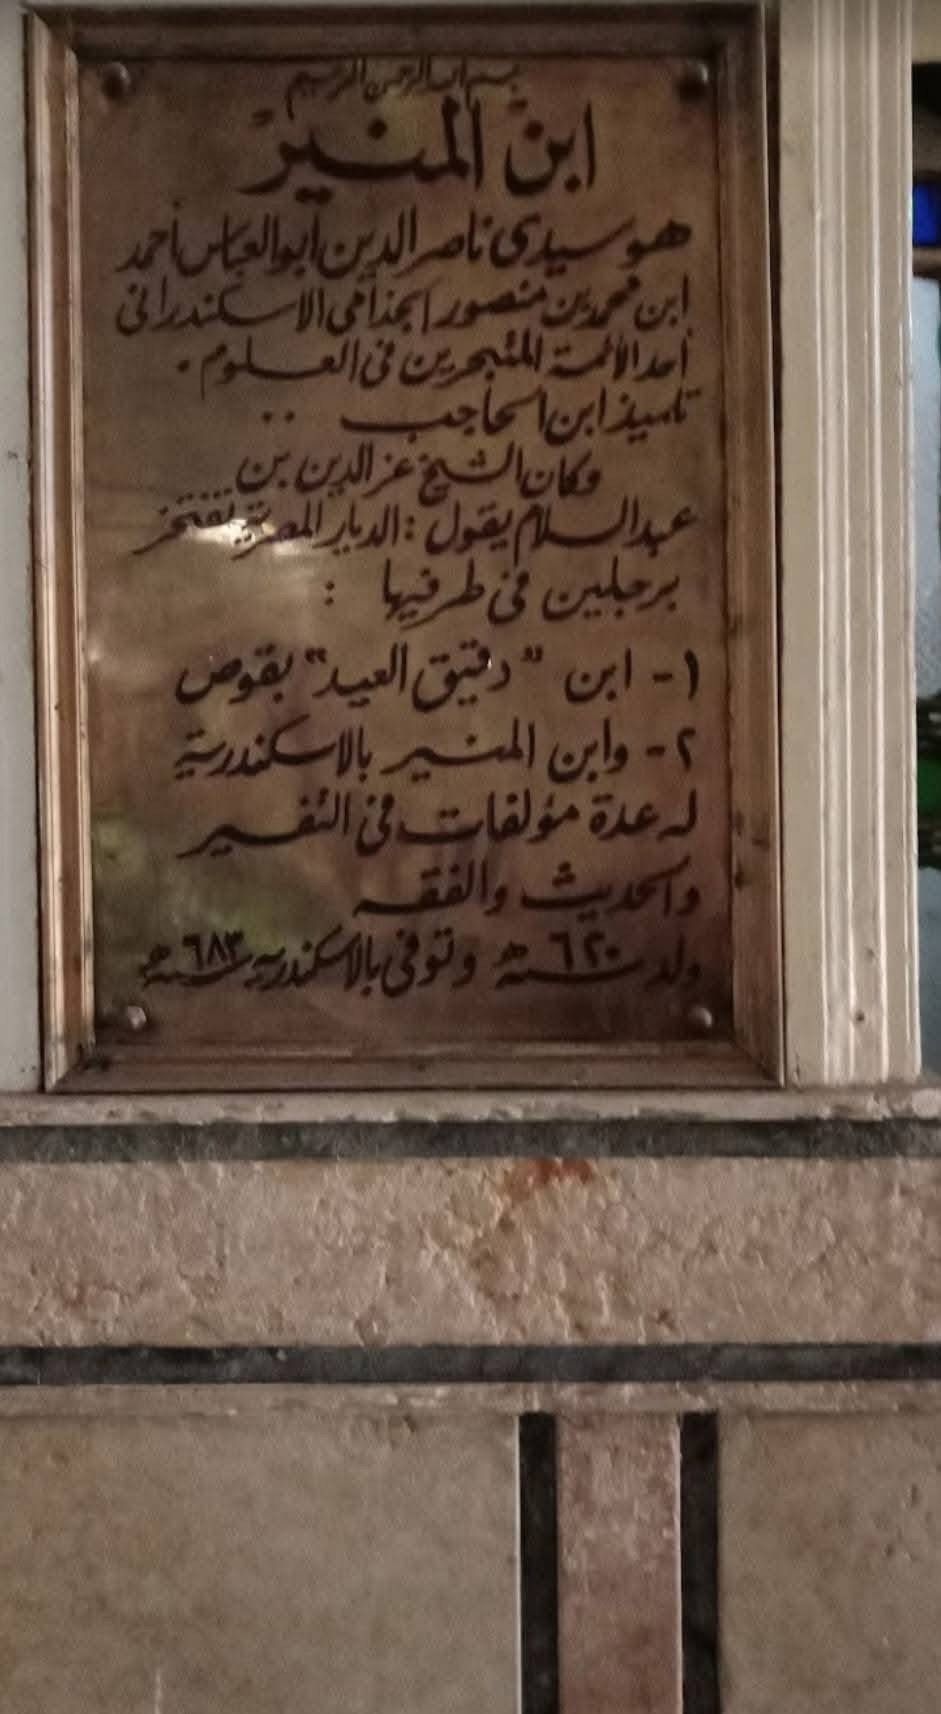 بسم الله الرحمن الرحيم
ابن المنير
هو سيدى ناصر الدين أبو العباس أحمد
ابن محمد بن منصور الجذامى الاسكندرانى
أحد الأئمة المتبحرين فى العلوم .
تلميذ ابن الحاجب ..
وكان الشيخ عز الدين بن
عبد السلام يقول : الديار المصرية تفتخر
برجلين فى طرفيها :
١- ابن "دقيق العيد" بقوص
٢- وابن المنير بالاسكندرية
له عدة مؤلفات فى التفسير
والحديث والفقه
ولد سنة ٦٢٠ هـ وتوفى بالاسكندرية سنة ٦٨٣ هـ